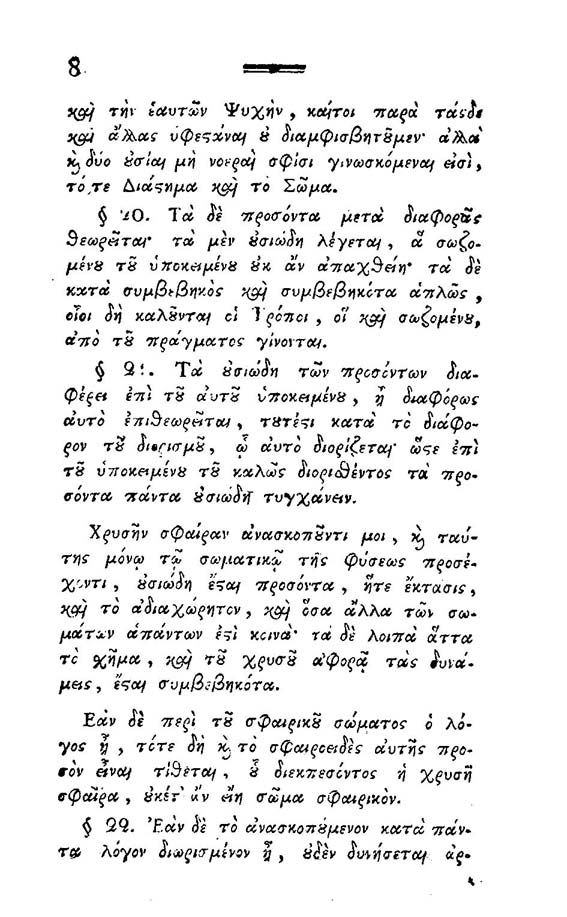 8
καὶ τὴν ἑαυτῶν Ψυχὴν, καίτοι παρὰ τάςδε
καὶ ἄλλας ὑφεςάναι ȣ διαμφισβητȣ͂μεν· ἀλλὰ
ϗ δύο ȣσίαι μὴ νοεραὶ σφίσι γινωσκόμεναι εἰσὶ,
τό,τε Διάςημα καὶ τὸ Σῶμα.
§ 20. Τὰ δὲ προσόντα μετὰ διαφορᾶς
θεωρεῖται· τὰ μὲν ȣσιώδη λέγεται, ἃ σωζο-
μένȣ τȣ͂ ὑποκειμένȣ ȣκ ἂν ἀπαχθείη· τὰ δὲ
κατὰ συμβεβηκὸς καὶ συμβεβηκότα ἁπλῶς,
οἷοι δὴ καλȣ͂νται οἱ Τρόποι, οἳ καὶ σωζομένȣ,
ἀπὸ τȣ͂ πράγματος γίνονται.
§ 21. Τὰ ȣσιώδη τῶν προσόντων δια-
φέρει ἐπὶ τȣ͂ αὐτȣ͂ ὑποκειμένȣ, ᾗ διαφόρως
αὐτὸ ἐπιθεωρεῖται, τȣτέςι κατὰ τὸ διάφο-
ρον τȣ͂ διορισμȣ͂, ᾧ αὐτὸ διορίζεται· ὥςε ἐπὶ
τȣ͂ ὑποκειμένȣ τȣ͂ καλῶς διορισθέντος τὰ προ-
σόντα πάντα ȣσιώδη τυγχάνειν.
Χρυσῆν σφαῖραν ἀνασκοπȣ͂ντι μοι, ϗ ταύ-
της μόνῳ τῷ σωματικῷ τῆς φύσεως προσέ-
χοντι, ȣσιώδη ἔςαι προσόντα, ἥτε ἔκτασις,
καὶ τὸ ἀδιαχώρητον, καὶ ὅσα ἄλλα τῶν σω-
μάτων ἁπάντων ἐςὶ κοινά· τὰ δὲ λοιπὰ ἅττα
τὸ χῆμα, καὶ τȣ͂ χρυσȣ͂ ἀφορᾷ τὰς δυνά-
μεις, ἔςαι συμβεβηκότα.
Εὰν δὲ περὶ τȣ͂ σφαιρικȣ͂ σώματος ὁ λό-
γος ᾖ, τότε δὴ ϗ τὸ σφαιροειδὲς αὐτῆς προ-
σὸν εἶναι τίθεται, ȣ͗͂ διεκπεσόντος ἡ χρυσῆ
σφαῖρα, ȣκέτ' ἂν εἴη σῶμα σφαιρικὸν.
§ 22. Ἐὰν δὲ τὸ ἀνασκοπȣ́μενον κατὰ πάν-
τα λόγον διωρισμένον ᾖ, ȣδὲν δυνήσεται ἀρ-